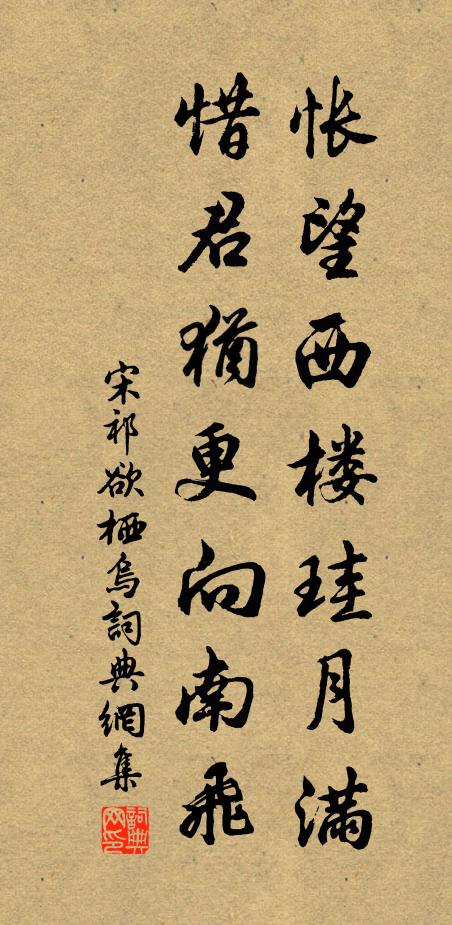 怅望西楼珪月满
惜君犹更向南飞
宋祁欲栖乌詞典網集
詞典網印